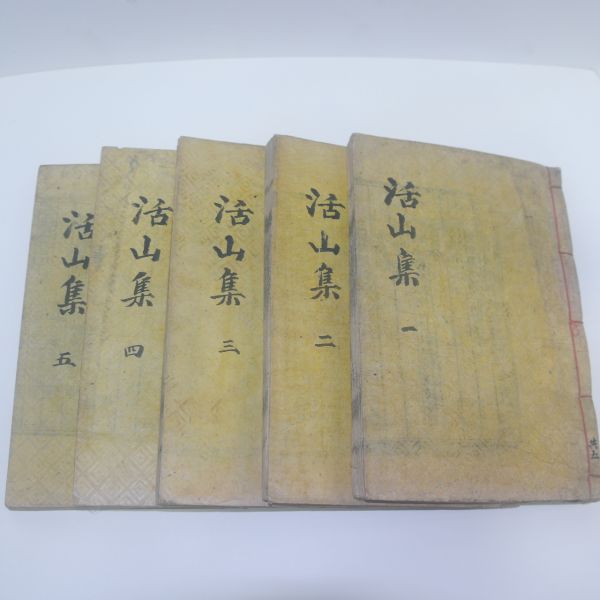 活山集 一
共五
活山集 二
活山集 三
活山集 四
活山集 五